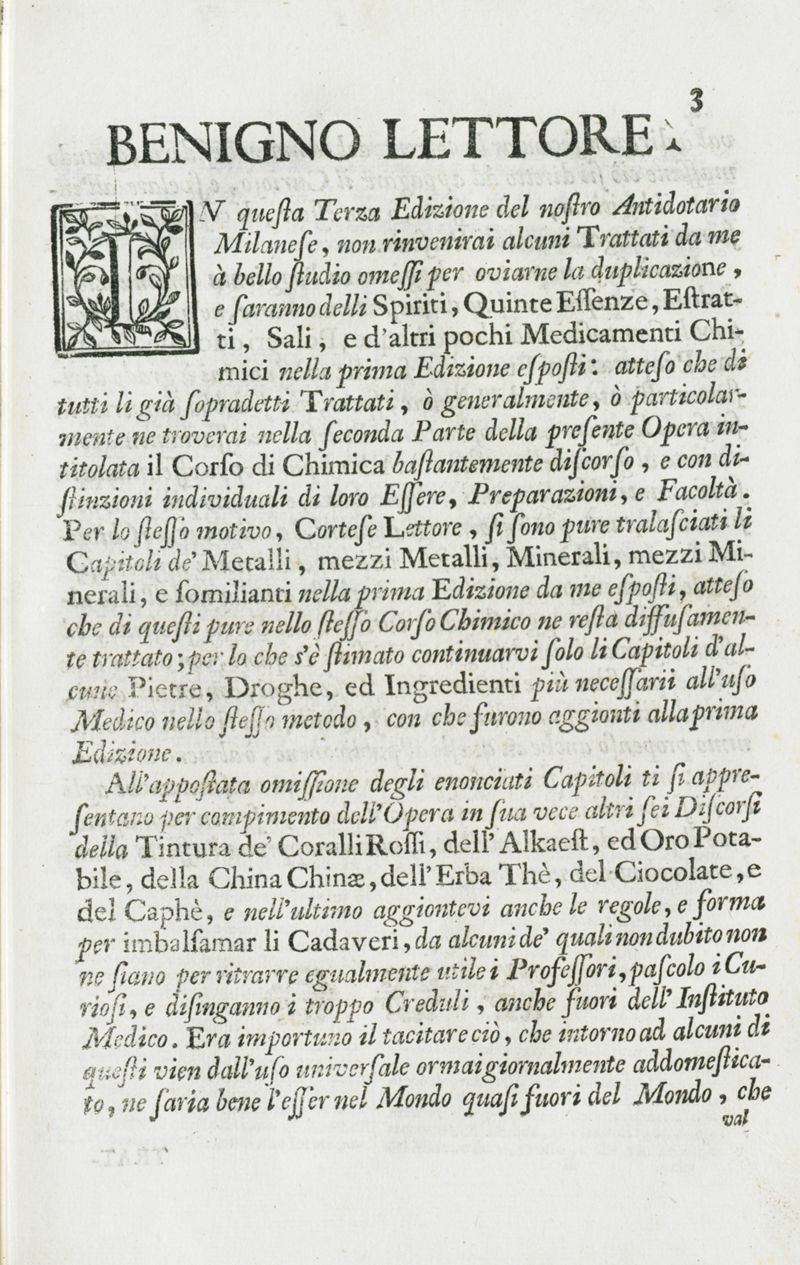 3
BENIGNO LETTORE.
IN queſta Terza Edizione del noſtro Antidotario
Milaneſe, non rinvenirai alcuni Trattati da me
à bello ſtudio omeſſi per oviarne la duplicazione,
e ſaranno delli Spiriti, Quinte Eſſenze, Eſtrat-
ti, Sali, e d'altri pochi Medicamenti Chi-
mici nella prima Edizione eſpoſti: atteſo che di
tutti li già ſopradetti Trattati, ò generalmente, ò particolar-
mente ne troverai nella ſeconda Parte della preſente Opera in-
titolata il Corſo di Chimica baſtantemente diſcorſo, e con di-
ſtinzioni individuali di loro Eſſere, Preparazioni, e Facoltà.
Per lo ſteſſo motivo, Corteſe Lettore, ſi ſono pure tralaſciati li
Capitoli de' Metalli, mezzi Metalli, Minerali, mezzi Mi-
nerali, e ſomilianti nella prima Edizione da me eſpoſti, atteſo
che di queſti pure nello ſteſſo Corſo Chimico ne reſta diffuſamen-
te trattato; per lo che s'è ſtimato continuarvi ſolo li Capitoli d'al-
cune Pietre, Droghe, ed Ingredienti più neceſſarii all'uſo
Medico nello ſteſſo metodo, con che furono aggionti alla prima
Edizione.
All'appoſtata omiſſione degli enonciati Capitoli ti ſi appre-
ſentano per compimento dell'Opera in ſua vece altri ſei Diſcorſi
della Tintura de' Coralli Roſſi, dell' Alkaeſt, ed Oro Pota-
bile, della China Chinæ, dell' Erba Thè, del Ciocolate, e
del Caphè, e nell'ultimo aggiontevi anche le regole, e forma
per imbalſamar li Cadaveri, da alcuni de' quali non dubito non
ne ſiano per ritrarre egualmente utile i Profeſſori, paſcolo i Cu-
rioſi, e diſinganno i troppo Creduli, anche fuori dell' Inſtituto
Medico. Era importuno il tacitare ciò, che intorno ad alcuni di
queſti vien dall'uſo univerſale ormai giornalmente addomeſtica-
to, ne ſaria bene l'eſſer nel Mondo quaſi fuori del Mondo, che
val